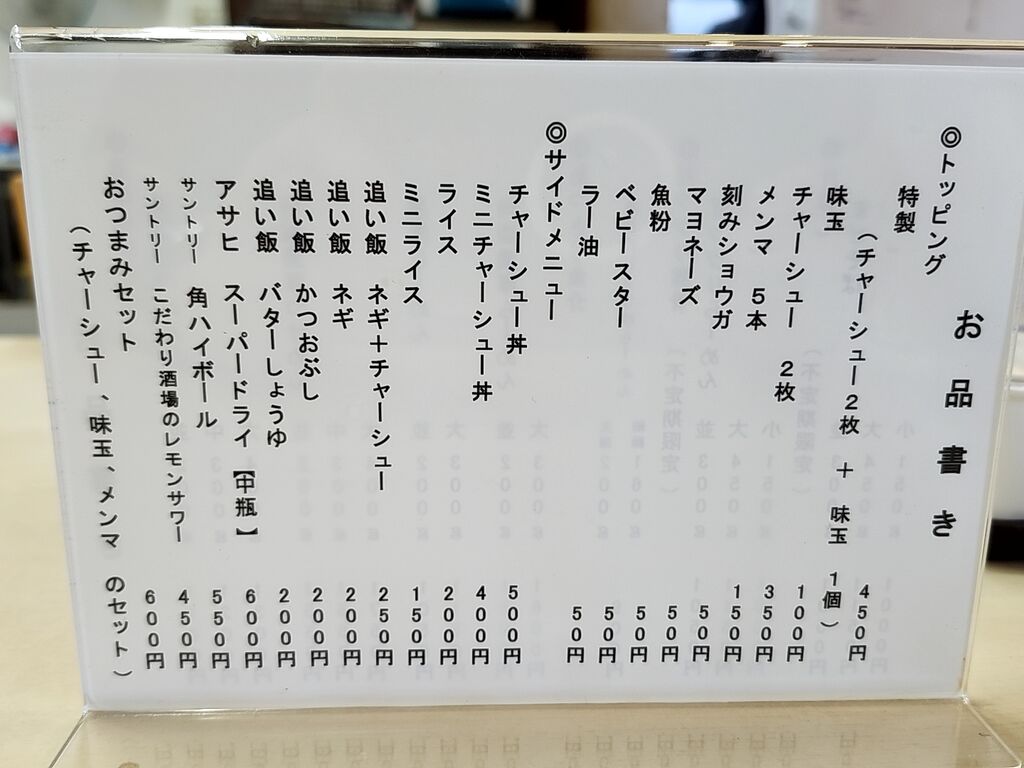 お品書き
◎トッピング
特製 450円
(チャーシュー2枚 + 味玉 1個)
味玉 100円
チャーシュー 2枚 350円
メンマ 5本 150円
刻みショウガ 50円
マヨネーズ 50円
魚粉 50円
ベビースター 50円
ラー油 50円
◎サイドメニュー
チャーシュー丼 500円
ミニチャーシュー丼 400円
ライス 200円
ミニライス 150円
追い飯 ネギ+チャーシュー 250円
追い飯 ネギ 200円
追い飯 かつおぶし 200円
追い飯 バターしょうゆ 200円
アサヒ スーパードライ【中瓶】 600円
サントリー 角ハイボール 550円
サントリー こだわり酒場のレモンサワー 450円
おつまみセット 600円
(チャーシュー、味玉、メンマ のセット)